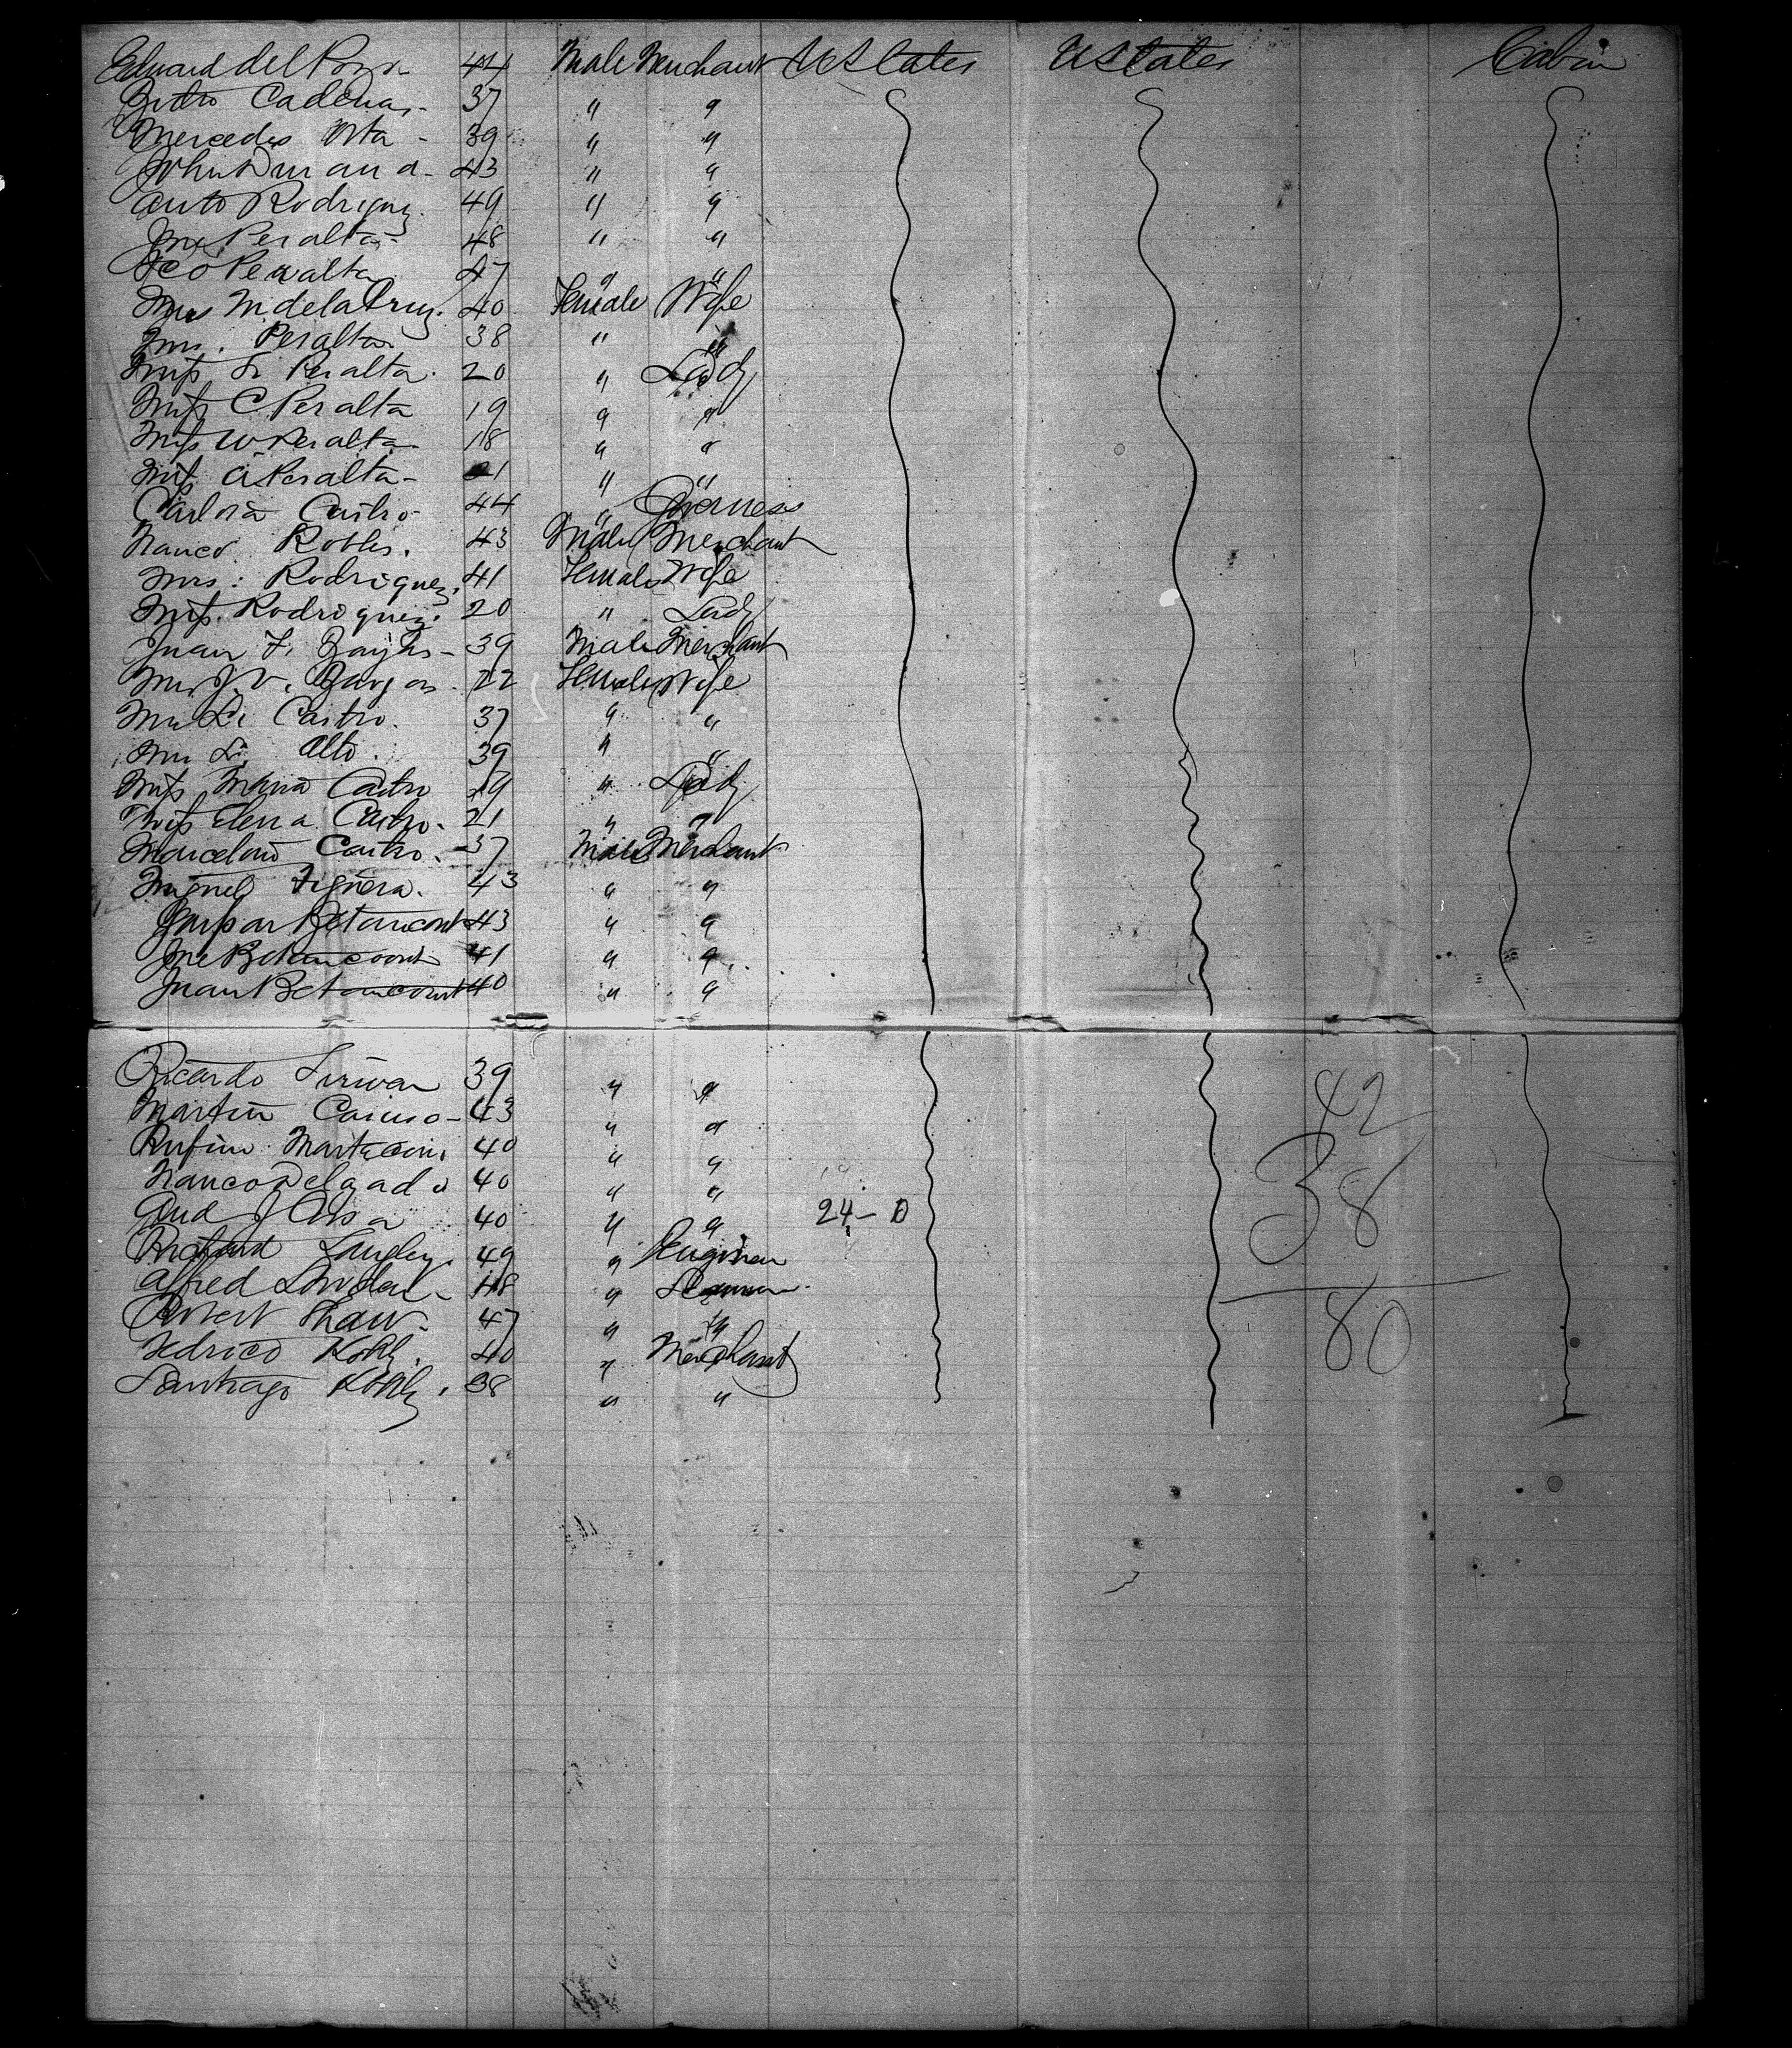 Eduard del Pozo - 44 Male Merchant U States U States Cabin
Pedro Cadenas - 37 " "
Mercedes Orta - 39 " "
John Durand - 43 " "
Anto Rodriguez 49 " "
Jose Peralta - 48 " "
Fco Peralta 47 " "
Mrs M. de la Cruz. 40 Female Wife
Mrs. Peralta 38 " "
Miss F. Peralta. 20 " Lady
Miss C Peralta 19 " "
Miss W Peralta 18 " "
Miss A Peralta - 21 " "
Carlota Castro 44 " Governess
Franco Robles. 43 Male Merchant
Mrs: Rodriguez. 41 Female Wife
Miss. Rodroquez. 20 " Lady
Juan F. - 39 Male Merchant
Mrs J. V. Vargas 22 Female Wife
Mrs L. Castro. 37 " "
Mrs L. Alto. 39 " "
Miss Maria Castro 19 " Lady
Miss Elena Castro. 21 " "
Marcelono Castro. 37 Male Merchant
Miguel Figuera. 43 " "
Gaspar Betancourt 43 " "
Jose Betancourt 41 " "
Juan Betancourt 40 " "
Ricardo 39 " "
Martin Caruso - 43 " " 42
Rufino 40 " "
Franco Delgado 40 " " 38
And J 40 " " 24 - D
Richard Langley. 49 " Engineer
Alfred - 48 "
Robert Shaw - 47 " " 80
Fedrico Kohly. 40 " Merchant
Santiago Kohly. 38 " "